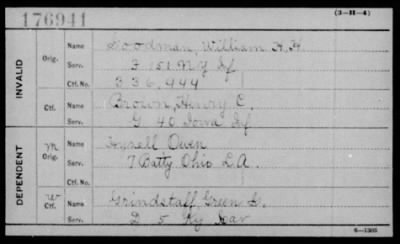 176941 (3-H-4)
INVALID
Orig. Name Goodman, William H. H.
Serv. F 151 N Y Inf
Ctf. No. 336,944
Ctf. Name Brown, Henry C.
Serv. G 40 Iowa Inf
DEPENDENT
m Orig. Name Owen
Serv. 7 Batty Ohio L.A.
Ctf. No.
w Ctf. Name Grindstaff, Green L.
Serv. D 5 Ky Cav
6—1305